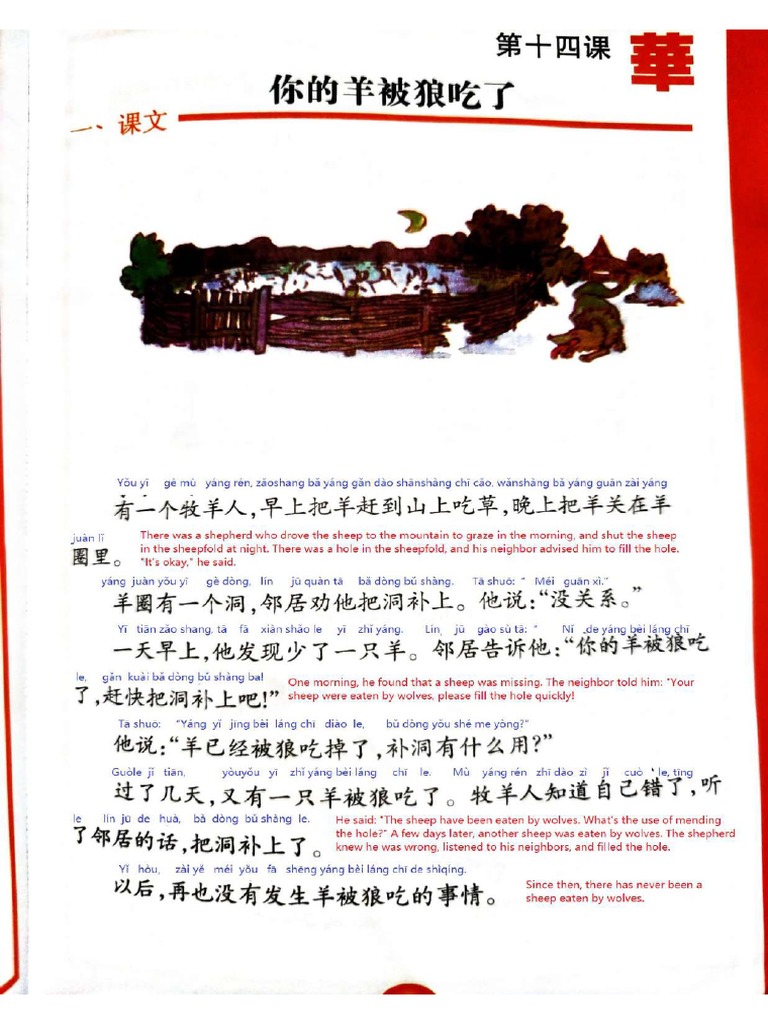 第十四课 華
你的羊被狼吃了
一、课文
Yǒu yī gè mù yáng rén, zāoshang bǎ yáng gǎn dào shānshàng chī cǎo, wǎnshàng bǎ yáng guān zài yáng
有一个牧羊人,早上把羊赶到山上吃草,晚上把羊关在羊
juàn lǐ
圈里。
There was a shepherd who drove the sheep to the mountain to graze in the morning, and shut the sheep
in the sheepfold at night. There was a hole in the sheepfold, and his neighbor advised him to fill the hole.
"It's okay," he said.
yáng juàn yǒu yī gè dòng, lín jū quàn tā bǎ dòng bǔ shàng. Tā shuō: " Méi guān xì."
羊圈有一个洞,邻居劝他把洞补上。他说:“没关系。”
Yī tiān zǎo shang, tā fā xiàn shǎo le yī zhī yáng. Lín jū gào sù tā: " Nǐ de yáng bèi láng chī
一天早上,他发现少了一只羊。邻居告诉他:“你的羊被狼吃
le, gǎn kuài bǎ dòng bǔ shàng ba!
了,赶快把洞补上吧!”
One morning, he found that a sheep was missing. The neighbor told him: "Your
sheep were eaten by wolves, please fill the hole quickly!
Tā shuō: "Yáng yǐ jīng bèi láng chī diào le, bǔ dòng yǒu shé me yòng?"
他说:“羊已经被狼吃掉了,补洞有什么用?”
Guòle jǐ tiān, yòuyǒu yī zhī yáng bèi láng chī le. Mù yáng rén zhī dào zì jǐ cuò le, tīng
过了几天,又有一只羊被狼吃了。牧羊人知道自己错了,听
le lín jū de huà, bǎ dòng bǔ shàng le.
了邻居的话,把洞补上了。
He said: "The sheep have been eaten by wolves. What's the use of mending
the hole?" A few days later, another sheep was eaten by wolves. The shepherd
knew he was wrong, listened to his neighbors, and filled the hole.
Yǐ hòu, zài yě méi yǒu fā shēng yáng bèi láng chī de shìqíng.
以后,再也没有发生羊被狼吃的事情。
Since then, there has never been a
sheep eaten by wolves.